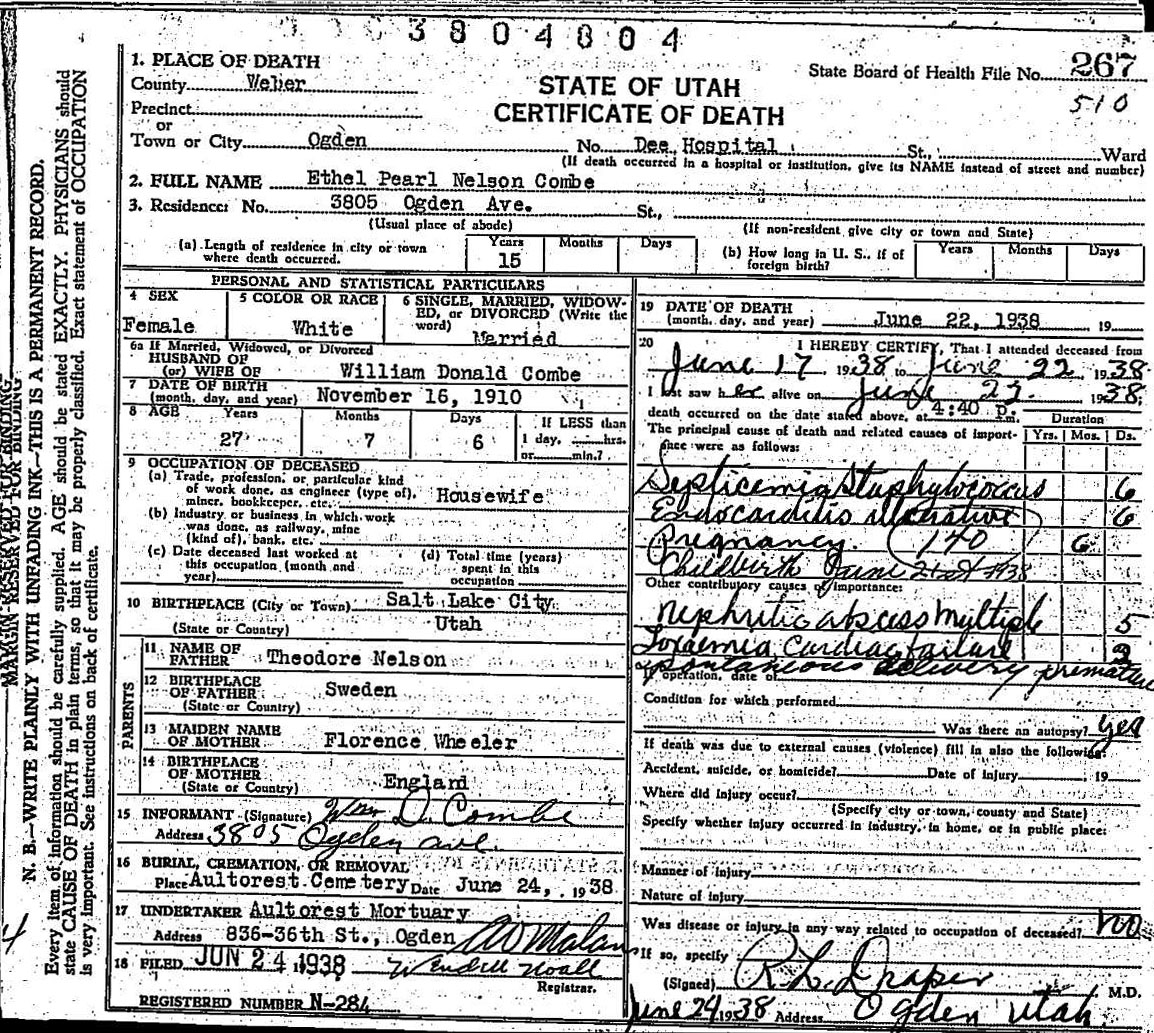 3804804
1. PLACE OF DEATH
County Weber
State Board of Health File No. 267
510
STATE OF UTAH
CERTIFICATE OF DEATH
Precinct
or
Town or City Ogden No. Dee Hospital St., Ward
(If death occurred in a hospital or institution, give its NAME instead of street and number)
2. FULL NAME Ethel Pearl Nelson Combe
3. Residence: No. 3805 Ogden Ave. St.,
(Usual place of abode) (If non-resident give city or town and State)
(a) Length of residence in city or town where death occurred. Years 15 Months Days
(b) How long in U. S., if of foreign birth? Years Months Days
PERSONAL AND STATISTICAL PARTICULARS
4 SEX Female
5 COLOR OR RACE White
6 SINGLE, MARRIED, WIDOW-
ED, or DIVORCED (Write the
word) Married
6a If Married, Widowed, or Divorced
HUSBAND OF
(or) WIFE OF William Donald Combe
7 DATE OF BIRTH
(month, day, and year) November 16, 1910
8 AGE Years Months Days If LESS than
27 7 6 1 day, hrs.
or min.?
9 OCCUPATION OF DECEASED
(a) Trade, profession, or particular kind
of work done, as engineer (type of),
miner, bookkeeper, etc. Housewife
(b) Industry or business in which work
was done, as railway, mine
(kind of), bank, etc.
(c) Date deceased last worked at
this occupation (month and
year)
(d) Total time (years)
spent in this
occupation
10 BIRTHPLACE (City or Town) Salt Lake City
(State or Country) Utah
PARENTS
11 NAME OF
FATHER Theodore Nelson
12 BIRTHPLACE
OF FATHER Sweden
(State or Country)
13 MAIDEN NAME
OF MOTHER Florence Wheeler
14 BIRTHPLACE
OF MOTHER
(State or Country) England
15 INFORMANT (Signature) Wm D. Combe
Address 3805 Ogden ave.
16 BURIAL, CREMATION, OR REMOVAL
Place Aultorest Cemetery Date June 24, 1938
17 UNDERTAKER Aultorest Mortuary
Address 836-36th St., Ogden
18 FILED JUN 24 1938
Registrar.
REGISTERED NUMBER N-284
19 DATE OF DEATH
(month, day, and year) June 22, 1938 19
20 I HEREBY CERTIFY, That I attended deceased from
June 17 1938 to June 22 1938
I last saw her alive on June 1938;
death occurred on the date stated above, at 4:40 p.m.
Duration
The principal cause of death and related causes of import-
ance were as follows: Yrs. Mos. Ds.
Septicemia Staphylococcus 6
Endocarditis ulcerative 6
Pregnancy 140 6
Childbirth June 21st 1938
Other contributory causes of importance:
Nephritic abscess multiple 5
Toxaemia Cardiac failure
Spontaneous delivery premature
If operation, date of
Condition for which performed
Was there an autopsy? yes
If death was due to external causes (violence) fill in also the following:
Accident, suicide, or homicide? Date of injury , 19
Where did injury occur?
(Specify city or town, county and State)
Specify whether injury occurred in industry, in home, or in public place:
Manner of injury
Nature of injury
Was disease or injury in any way related to occupation of deceased? no
If so, specify
(Signed) R. L. Draper M.D.
June 24 1938 Address Ogden Utah
MARGIN RESERVED FOR BINDING
N. B.—WRITE PLAINLY WITH UNFADING INK—THIS IS A PERMANENT RECORD.
Every item of information should be carefully supplied. AGE should be stated EXACTLY. PHYSICIANS should
state CAUSE OF DEATH in plain terms, so that it may be properly classified. Exact statement of OCCUPATION
is very important. See instructions on back of certificate.